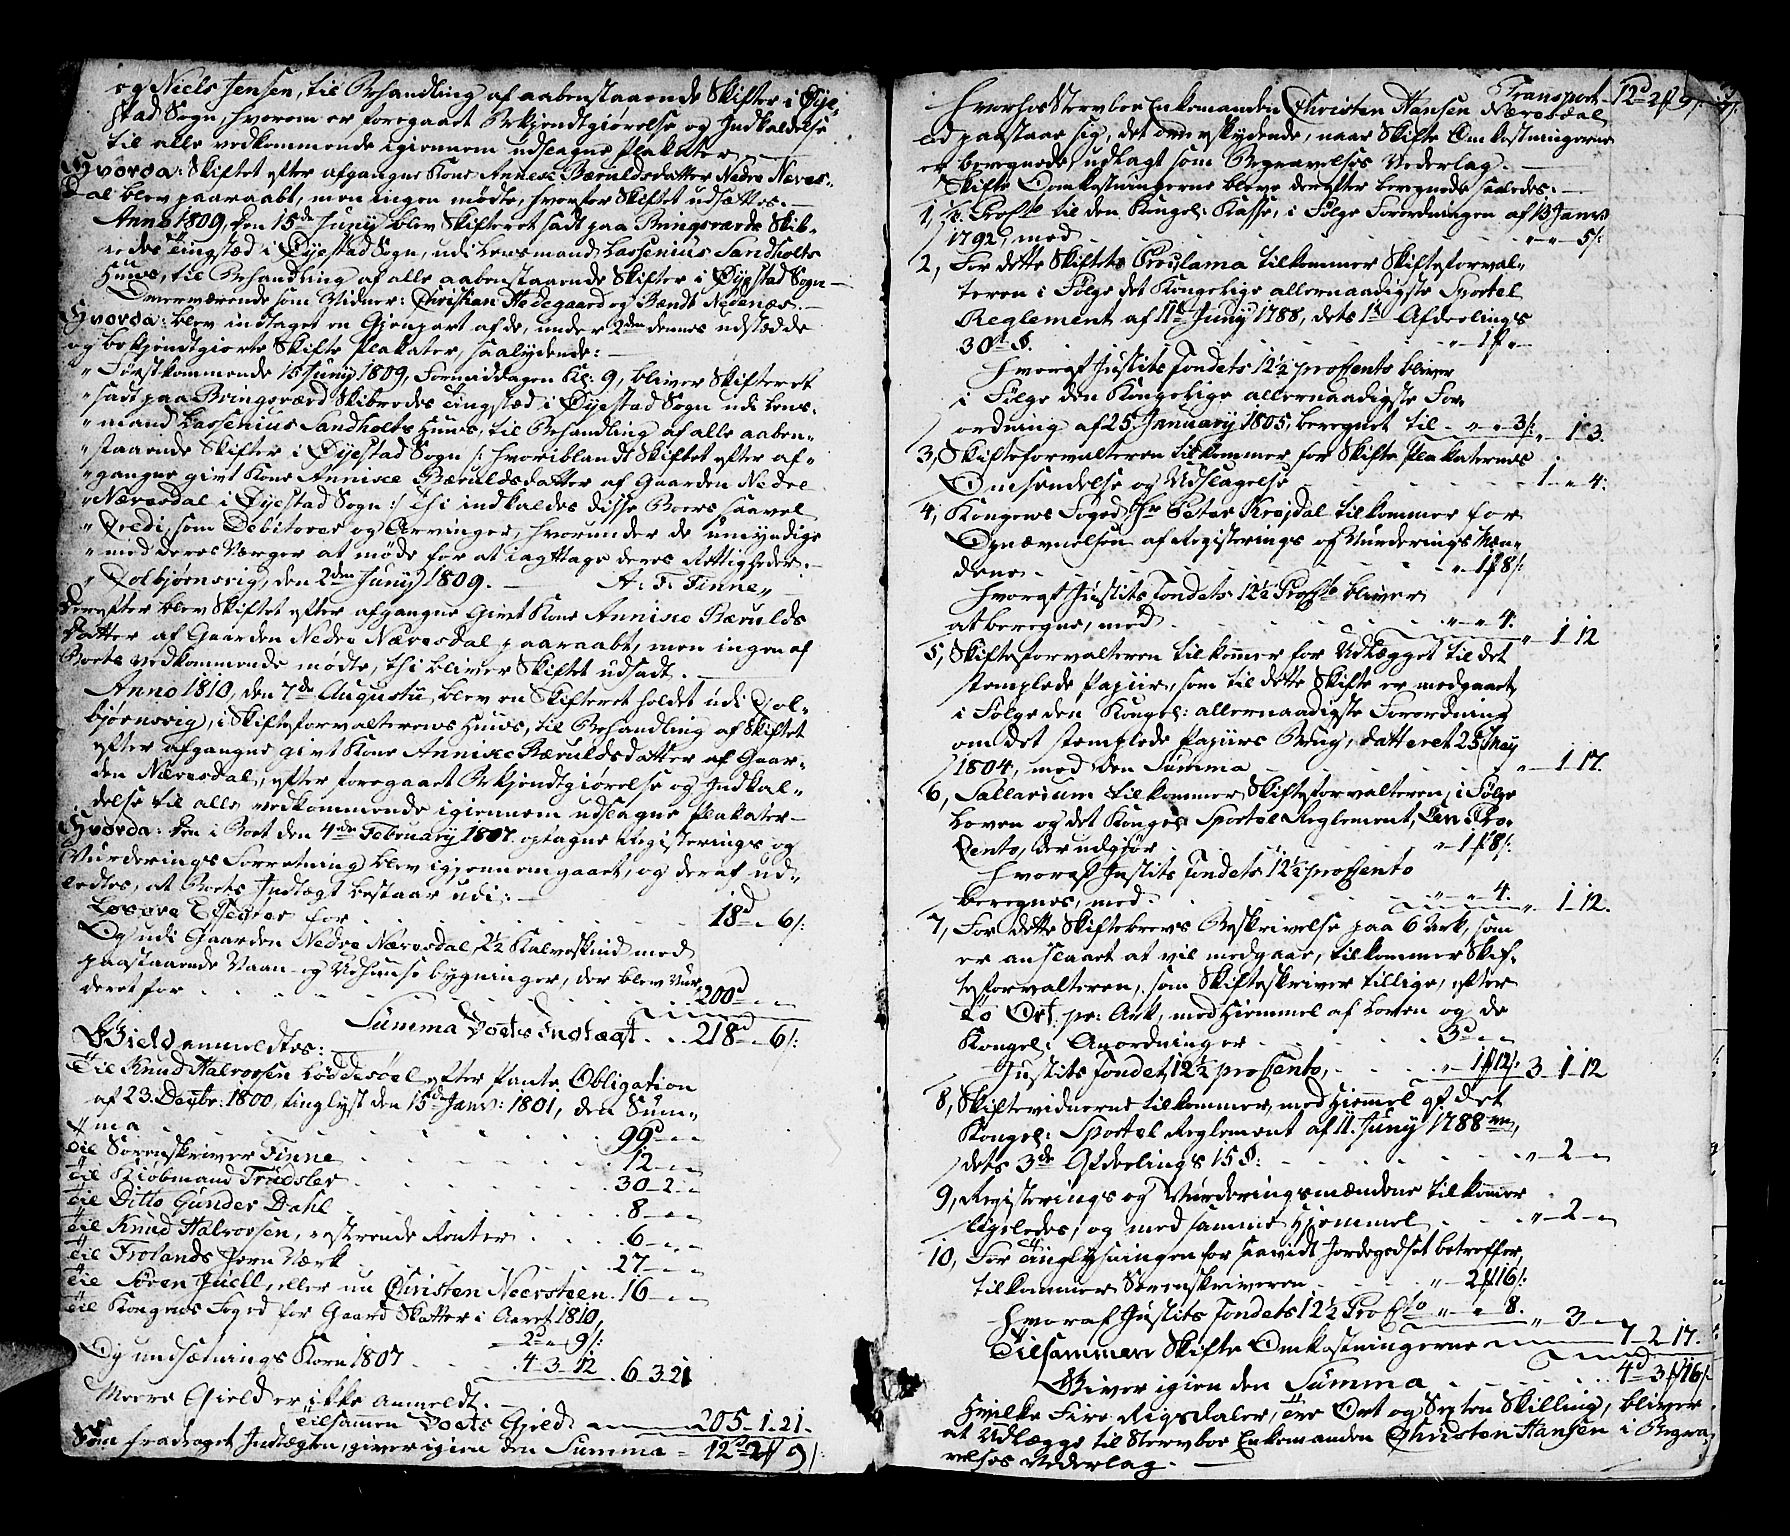 og Niels Jensen, til Behandling af aabenstaaende Skifter i Øye-
stad Sogn, hvorom er foregaaet Bekjendtgiørelse og Indkaldelse
til alle vedkommende igiennem udslagne Plakater.
Hvorda: Skiftet efter afgangne Kone Annixe Bæruldsdatter Nedre Næres-
dal blev paaraabt, men ingen mødte, hvorfor Skiftet udsættes.
Anno 1809, den 15de Juny blev Skifteret sadt paa Bringsværds Skib-
redes Tingstæd i Øyestad Sogn, udi Lensmand Lassenius Sandholts
Huus, til Behandling af alle aabenstaaende Skifter i Øyestad Sogn
Overværende som Vidner: Christian Hedegaard og Bendt Nedenæs.
Hvorda: blev indtaget en Gjenpart af de, under 2den dennes udstædde
og bekjendtgiorte Skifte Plakater, saalydende:
" Førstkommende 15 Juny 1809, Formiddagen Kl: 9, bliver Skifteret
" sadt paa Bringsværd Skibredes Tingstæd i Øyestad Sogn udi Lens-
" mand Lassenius Sandholts Huus, til Behandling af alle aaben-
" staaende Skifter i Øyestad Sogn /: hvoriblandt Skiftet efter af-
" gangne givt Kone Annixe Bæruldsdatter af Gaarden Nedre
" Næresdal i Øyestad Sogn :/ Thi indkaldes disse Boers saavel
" Credi- som Debitorer og Arvinger, hvorunder de umyndige
" med deres Værger at møde for at iagttage deres Rettigheder.
" Colbjørnsvig, den 2den Juny 1809. A: F: Finne,
Derefter blev Skiftet efter afgangne Givt Kone Annixe Bærulds
datter af Gaarden Nedre Næresdal paaraabt, men ingen af
Boets vedkommende mødte, thi bliver Skiftet udsadt.
Anno 1810, den 7de Augusti, blev en Skifteret holdet udi Col-
bjørnsvig, i Skifteforvalterens Huus, til Behandling af Skiftet
efter afgangne givt Kone Annixe Bæruldsdatter af Gaar-
den Næresdal, efter foregaaet Bekjendtgiørelse og Indkal-
delse til alle vedkommende igiennem udslagne Plakater
Hvorda: Den i Boet den 4de February 1807. optagne Registerings og
Vurderings Forretning blev igjennemgaaet, og deraf ud-
ledtes, at Boets Indtægt bestaar udi:
Løsøre Effecter for 18d " 6/:
Og udi Gaarden Nedre Næresdal, 2½ Kalveskind med
paastaaende Vaan- og Udhuuse bygninger, der blev Vur-
deret for 200d " "
Summa Boets Indtægt 218d " 6/:
Gield anmeldtes:
Til Knud Halvorsen Løddesøel efter Pante Obligation
af 23. Decbr: 1800, tinglyst den 15de Janv: 1801, den Sum-
ma 99d " "
Til Sorenskriver Finne 12 " "
Til Kiøbmand Trudsler 30 - 2 - "
Til Ditto Gunder Dahl 8 " "
Til Knud Halvorsen, resterende Renter 6 " "
Til Frolands Jern Værk 27 " "
Til Søren Juell, eller nu Christen Neersteen 16 " "
Til Kongens Foged for Gaard Skatter i Aaret 1810,
2d " 9/:
Og undsætnings Korn 1807 4 - 3 - 12 6 3 21
Meere Gield er ikke anmeldt.
Tilsamen Boets Gield: 205 - 1 - 21.
Som fradraget Indtægten, giver igien den Summa 12d 2# 9/:
Transport 12d 2# 9/:
Hvorhos Stervboe Enkemanden Christen Hansen Næresdal
ed paastaar sig, det overskydende, naar Skifte Omkostningerne
er beregnede, udlagt som Begravelses Vederlag.
Skifte Omkostningerne bleve derefter beregnede saaledes:
1, ½ Procto til den Kongel: Kasse, i Følge Forordningen af 13 Janv
1792, med " " 5/:
2, For dette Skiftets Proclama tilkommer Skifteforval-
teren i Følge det Kongelige allernaadigste Sportel
Reglement af 11te Juny 1788, dets 1ste Afdeelings
30te §. " 1# "
Hvoraf Justits Fondets 12½ proCento bliver
i Følge den Kongelige allernaadigste For-
ordning af 25 January 1805, beregnet til " " 3/: " 1 3.
3, Skifteforvalteren tilkommer for Skifte Plakaternes
Omsendelse og Udslagelse 1 - " 4:
4, Kongens Foged Hr Peter Krejdal tilkommer for
Opnævnelsen af Registerings og Vurderings Mæn-
dene " 1# 8/:
Hvoraf Justits Fondets 12½ Procto bliver
at beregne, med " " 4. " 1 12
5, Skifteforvalteren tilkommer for Udlægget til det
stemplede Papiir, som til dette Skifte er medgaaet,
i Følge den Kongel: allernaadigste Forordning
om det stemplede Papiirs Brug, datteret 25 May
1804, med den Summa " 1 17.
6, Sallarium tilkommer Skifteforvalteren, i Følge
Loven og det Kongel: Sportel Reglement, Een Pro-
Cento, der udgjør " 1# 8/:
Hvoraf Justits Fondets 12½ proCento
beregnes, med " " 4. " 1 12.
7, For dette Skiftebrevs Beskrivelse paa 6 Ark, som
er anslaaet at vil medgaae, tilkommer Skif-
teforvalteren, som Skifteskriver tillige, efter
to Ort pr: Ark, med Hiemmel af Loven og de
Kongel: Anordninger 3d " "
Justits Fondet 12½ proCento, " 1# 12/: 3 1 12
8, Skiftevidnerne tilkommer, med Hiemmel af det
Kongel: Sportel Reglement af 11. Juny 1788
dets 3de Afdeelings 15 §: " 2 "
9, Registerings og Vurderingsmændene tilkomer
ligeledes, og med samme Hjemmel " 2 "
10, For Tinglysningen for saavidt Jordegodset betreffer,
tilkommer Sorenskriveren " 2# 16/:
Hvoraf Justits Fondets 12½ Procto " " 8. " 3 "
Tilsammen Skifte Omkostningerne 7 - 2 17.
Giver igien den Summa 4d 3# 16/:
Hvilke Fire Rigsdaler, Tre Ort og Sexten Skilling, bliver
at Udlægge til Stervboe Enkemanden Christen Hansen i Begra-
velses Vederlag.